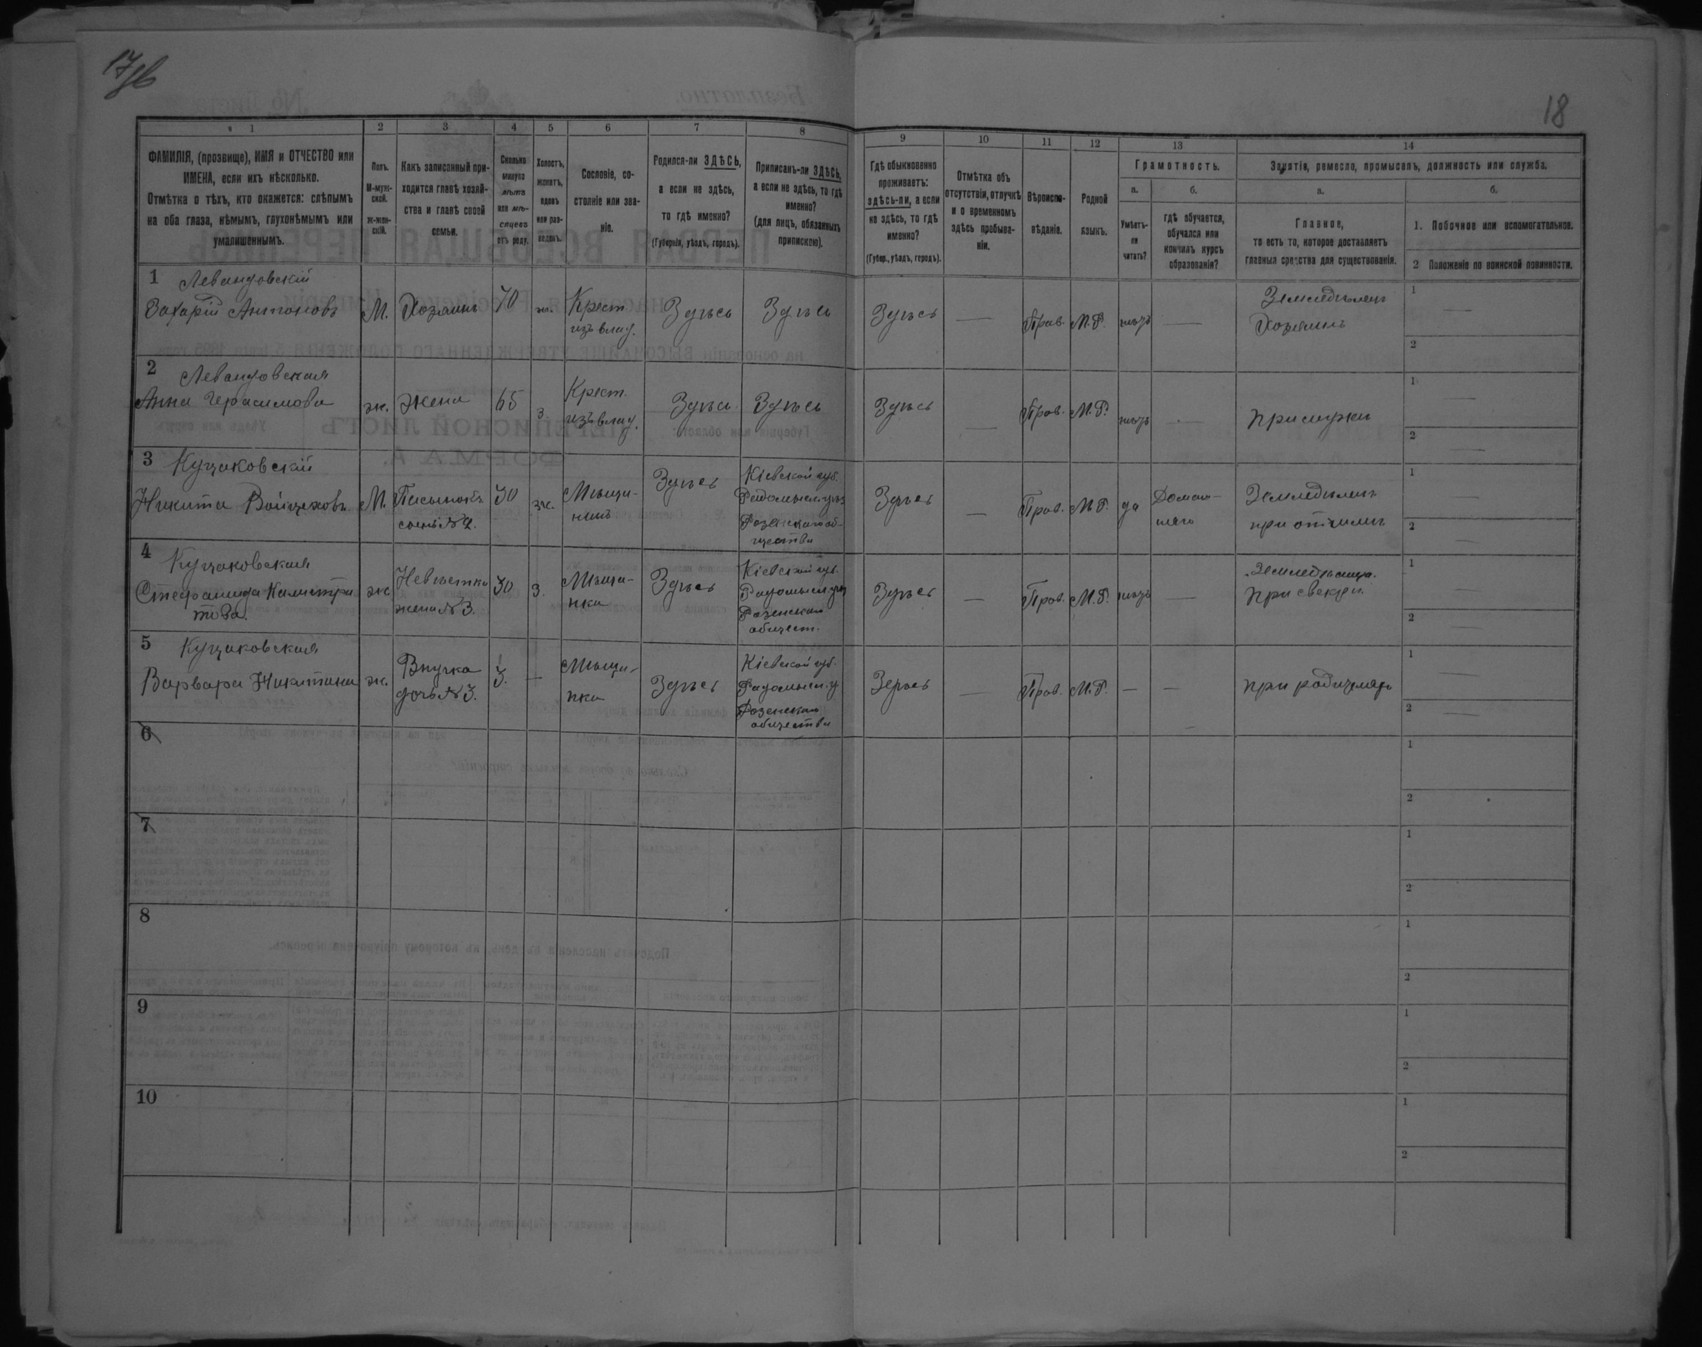 17об
18
1
2
3
4
5
6
7
8
9
10
11
12
13
14
ФАМИЛІЯ, (прозвище), ИМЯ и ОТЧЕСТВО или
ИМЕНА, если ихъ нѣсколько.
Отмѣтка о тѣхъ, кто окажется: слѣпымъ
на оба глаза, нѣмымъ, глухонѣмымъ или
умалишеннымъ.
Полъ.
М-муж-
ской.
ж-жен-
скій.
Какъ записанный при-
ходится главѣ хозяй-
ства и главѣ своей
семьи.
Сколько
минуло
лѣтъ
или мѣ-
сяцевъ
отъ роду.
Холостъ,
женатъ,
вдовъ
или раз-
веденъ.
Сословіе, со-
стояніе или зва-
ніе.
Родился-ли ЗДѢСЬ,
а если не здѣсь,
то гдѣ именно?
(Губернія, уѣздъ, городъ).
Приписанъ-ли ЗДѢСЬ,
а если не здѣсь, то гдѣ
именно?
(для лицъ, обязанныхъ
припискою).
Гдѣ обыкновенно
проживаетъ:
здѣсь-ли, а если
не здѣсь, то гдѣ
именно?
(Губер., уѣздъ, городъ).
Отмѣтка объ
отсутствіи, отлучкѣ
и о временномъ
здѣсь пребыва-
ніи.
Вѣроиспо-
вѣданіе.
Родной
языкъ.
Грамотность.
а.
б.
Умѣетъ-
ли
читать?
гдѣ обучается,
обучался или
кончилъ курсъ
образованія?
Занятія, ремесло, промыселъ, должность или служба.
а.
б.
Главное,
то есть то, которое доставляетъ
главныя средства для существованія.
1. Побочное или вспомогательное.
2 Положеніе по воинской повинности.
1
Левандовскій
Захарій Антоновъ
М.
Хозяинъ
70
ж.
Крест.
изъ влад.
Здѣсь
Здѣсь
Здѣсь
—
Прав.
М.Р.
нѣтъ
—
Земледѣлецъ
Хозяинъ
1
—
2
2
Левандовская
Анна Герасимова
ж.
Жена
65
з.
Крест.
изъ влад.
Здѣсь
Здѣсь
Здѣсь
—
Прав.
М.Р.
нѣтъ
—
При мужѣ
1
—
2
3
Куцаковскій
Никита Войцеховъ
М.
Пасынокъ
сынъ № 2.
30
ж.
Мѣща-
нинъ
Здѣсь
Кіевской губ.
Радомысл. уѣз
общества
Здѣсь
—
Прав.
М.Р.
да
Домаш-
няго
Земледѣлецъ
при отчимѣ
1
—
2
—
4
Куцаковская
Степанида Калистра
това.
ж.
Невѣстка
жена № 3.
30
з.
Мѣща-
нка
Здѣсь
Кіевской губ.
Радомысл. уѣз
общест.
Здѣсь
—
Прав.
М.Р.
нѣтъ
—
Земледѣлица.
При свекрѣ
1
—
2
—
5
Куцаковская
Варвара Никитина
ж.
Внучка
дочь № 3.
3.
—
Мѣща-
нка
Здѣсь
Кіевской губ.
Радомысл. у
общества
Здѣсь
—
Прав.
М.Р.
—
—
при родителяхъ
1
—
2
—
6
1
2
7
1
2
8
1
2
9
1
2
10
1
2